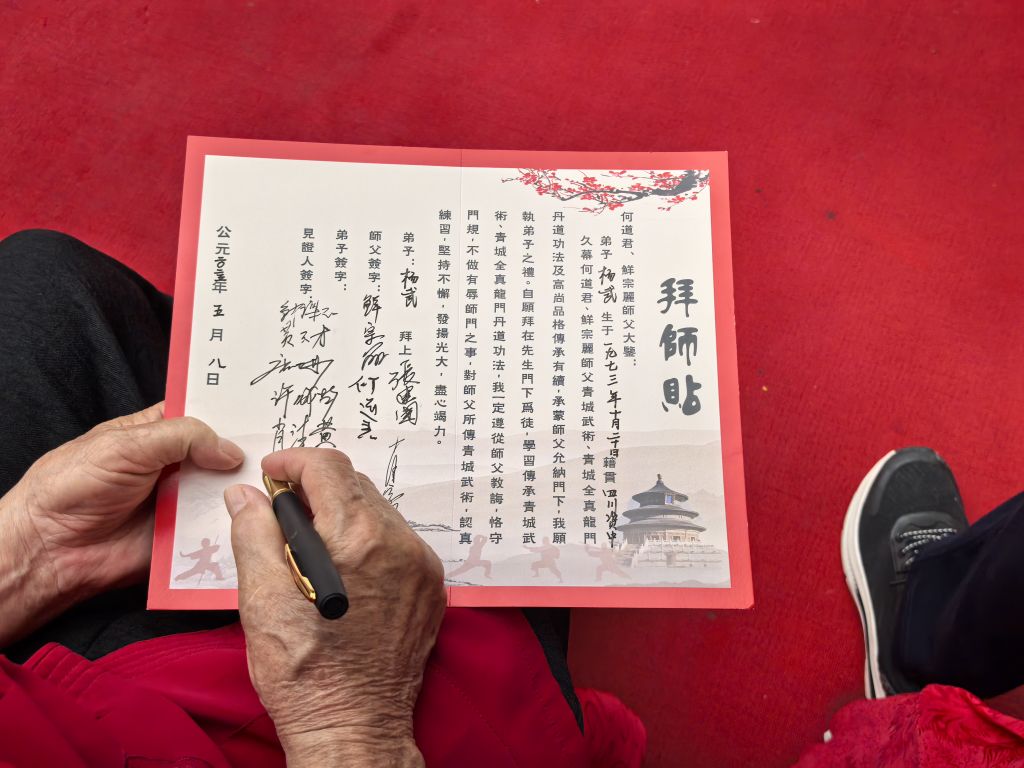 拜師貼
何道君、鮮宗麗師父大鑒：
弟子 杨武 生于一九七三年十月二十日藉貫四川资中
久慕何道君、鮮宗麗師父青城武術、青城全真龍門
丹道功法及高尚品格傳承有續，承蒙師父允納門下，我願
執弟子之禮。自願拜在先生門下爲徒，學習傳承青城武
術、青城全真龍門丹道功法，我一定遵從師父教誨，恪守
門規，不做有辱師門之事，對師父所傳青城武術，認真
練習，堅持不懈，發揚光大，盡心竭力。
弟子：杨武 拜上
師父簽字：鮮宗丽 何道君
弟子簽字：
見證人簽字：
公元 年 五 月 八 日